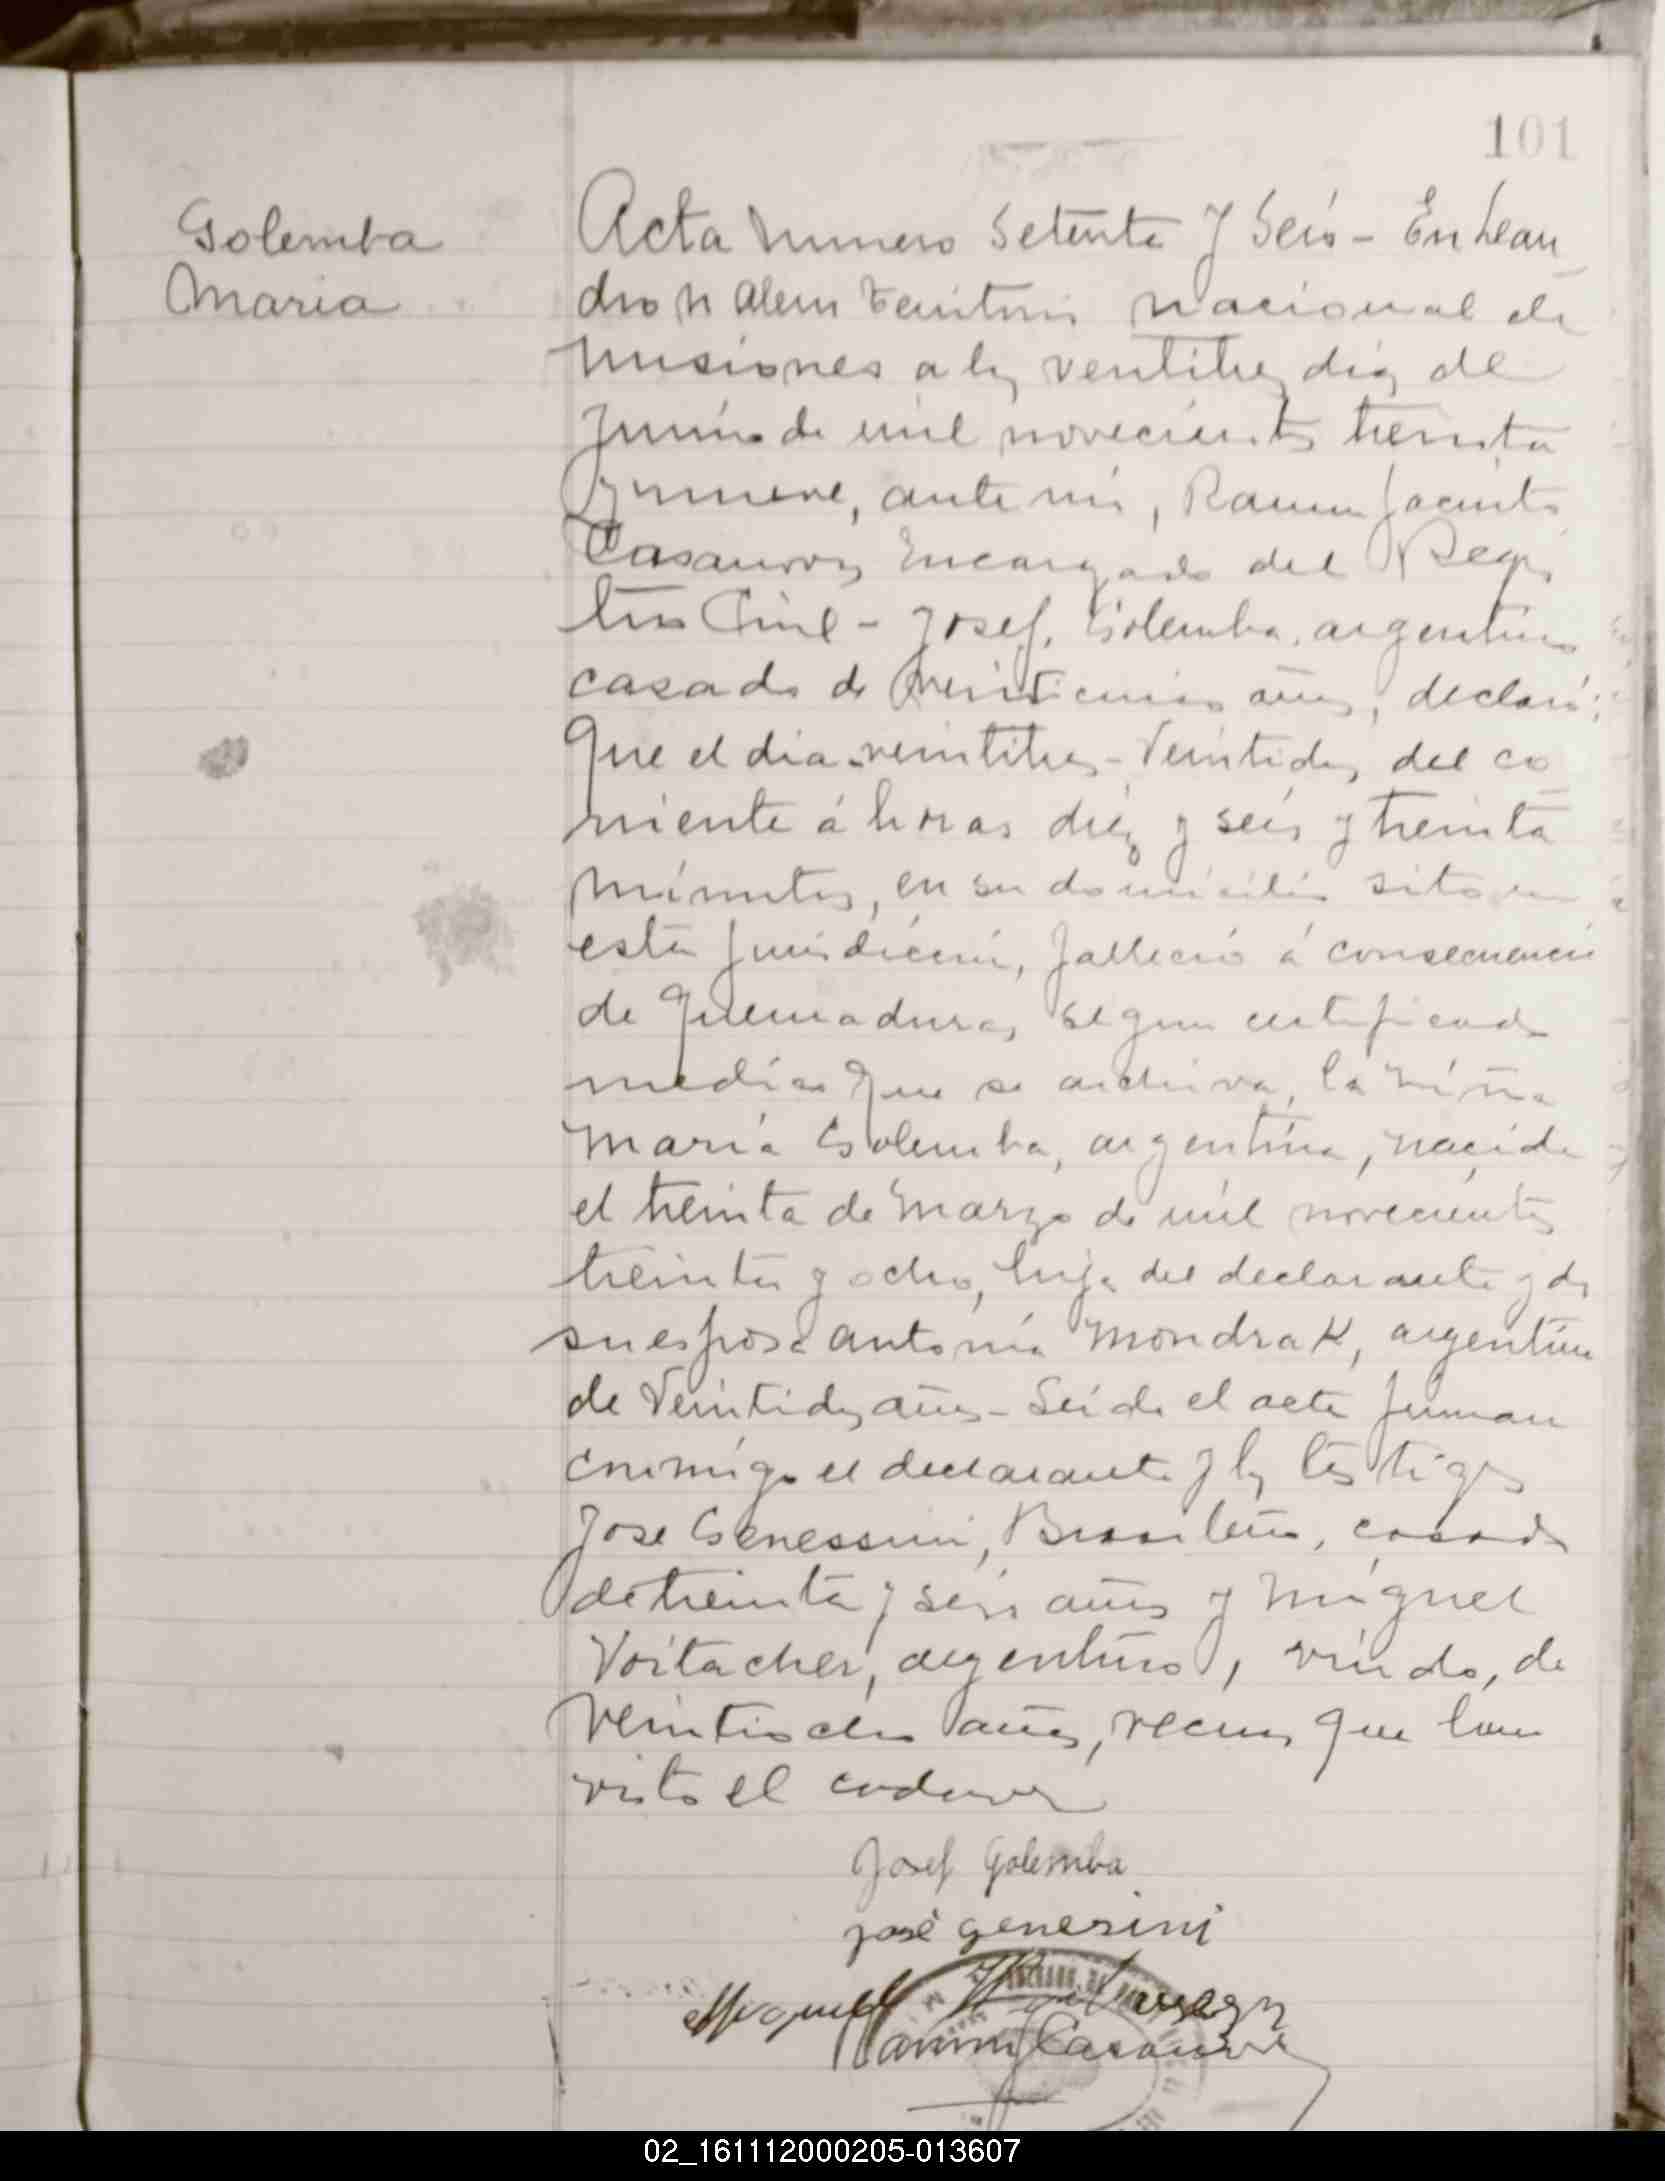 101
Golemba
Maria
Acta numero Setenta y Seis - En Lean
dro N Alem Territorio nacional de
Misiones a los ventitres dias de
Junio de mil novecientos treinta
y nueve, ante mi, Ramon Jacinto
Casanova Encargado del Regis
tro Civil - Josef. Golemba, argentino
casado de veinticinco años, declaró:
Que el dia veintitres - Veintidos del co
rriente á horas diez y seis y treinta
minutos, en su domicilio sito en
esta jurisdicción, falleció á consecuencia
de quemaduras segun certificado
medico que se archiva, la niña
Maria Golemba, argentina, nacida
el treinta de Marzo de mil novecientos
treinta y ocho, hija del declarante y de
su esposa Antonia Mondrak, argentina
de Veintidos años - Leida el acta firman
conmigo el declarante y los testigos
Jose Genessini, Brasileño, casado
de treinta y seis años y Miguel
Voitacher, argentino, viudo, de
veintiocho años, vecinos que han
visto el cadaver
Josef Golemba
josé genesini
Miguel
Ramon J Casanova
02_161112000205-013607